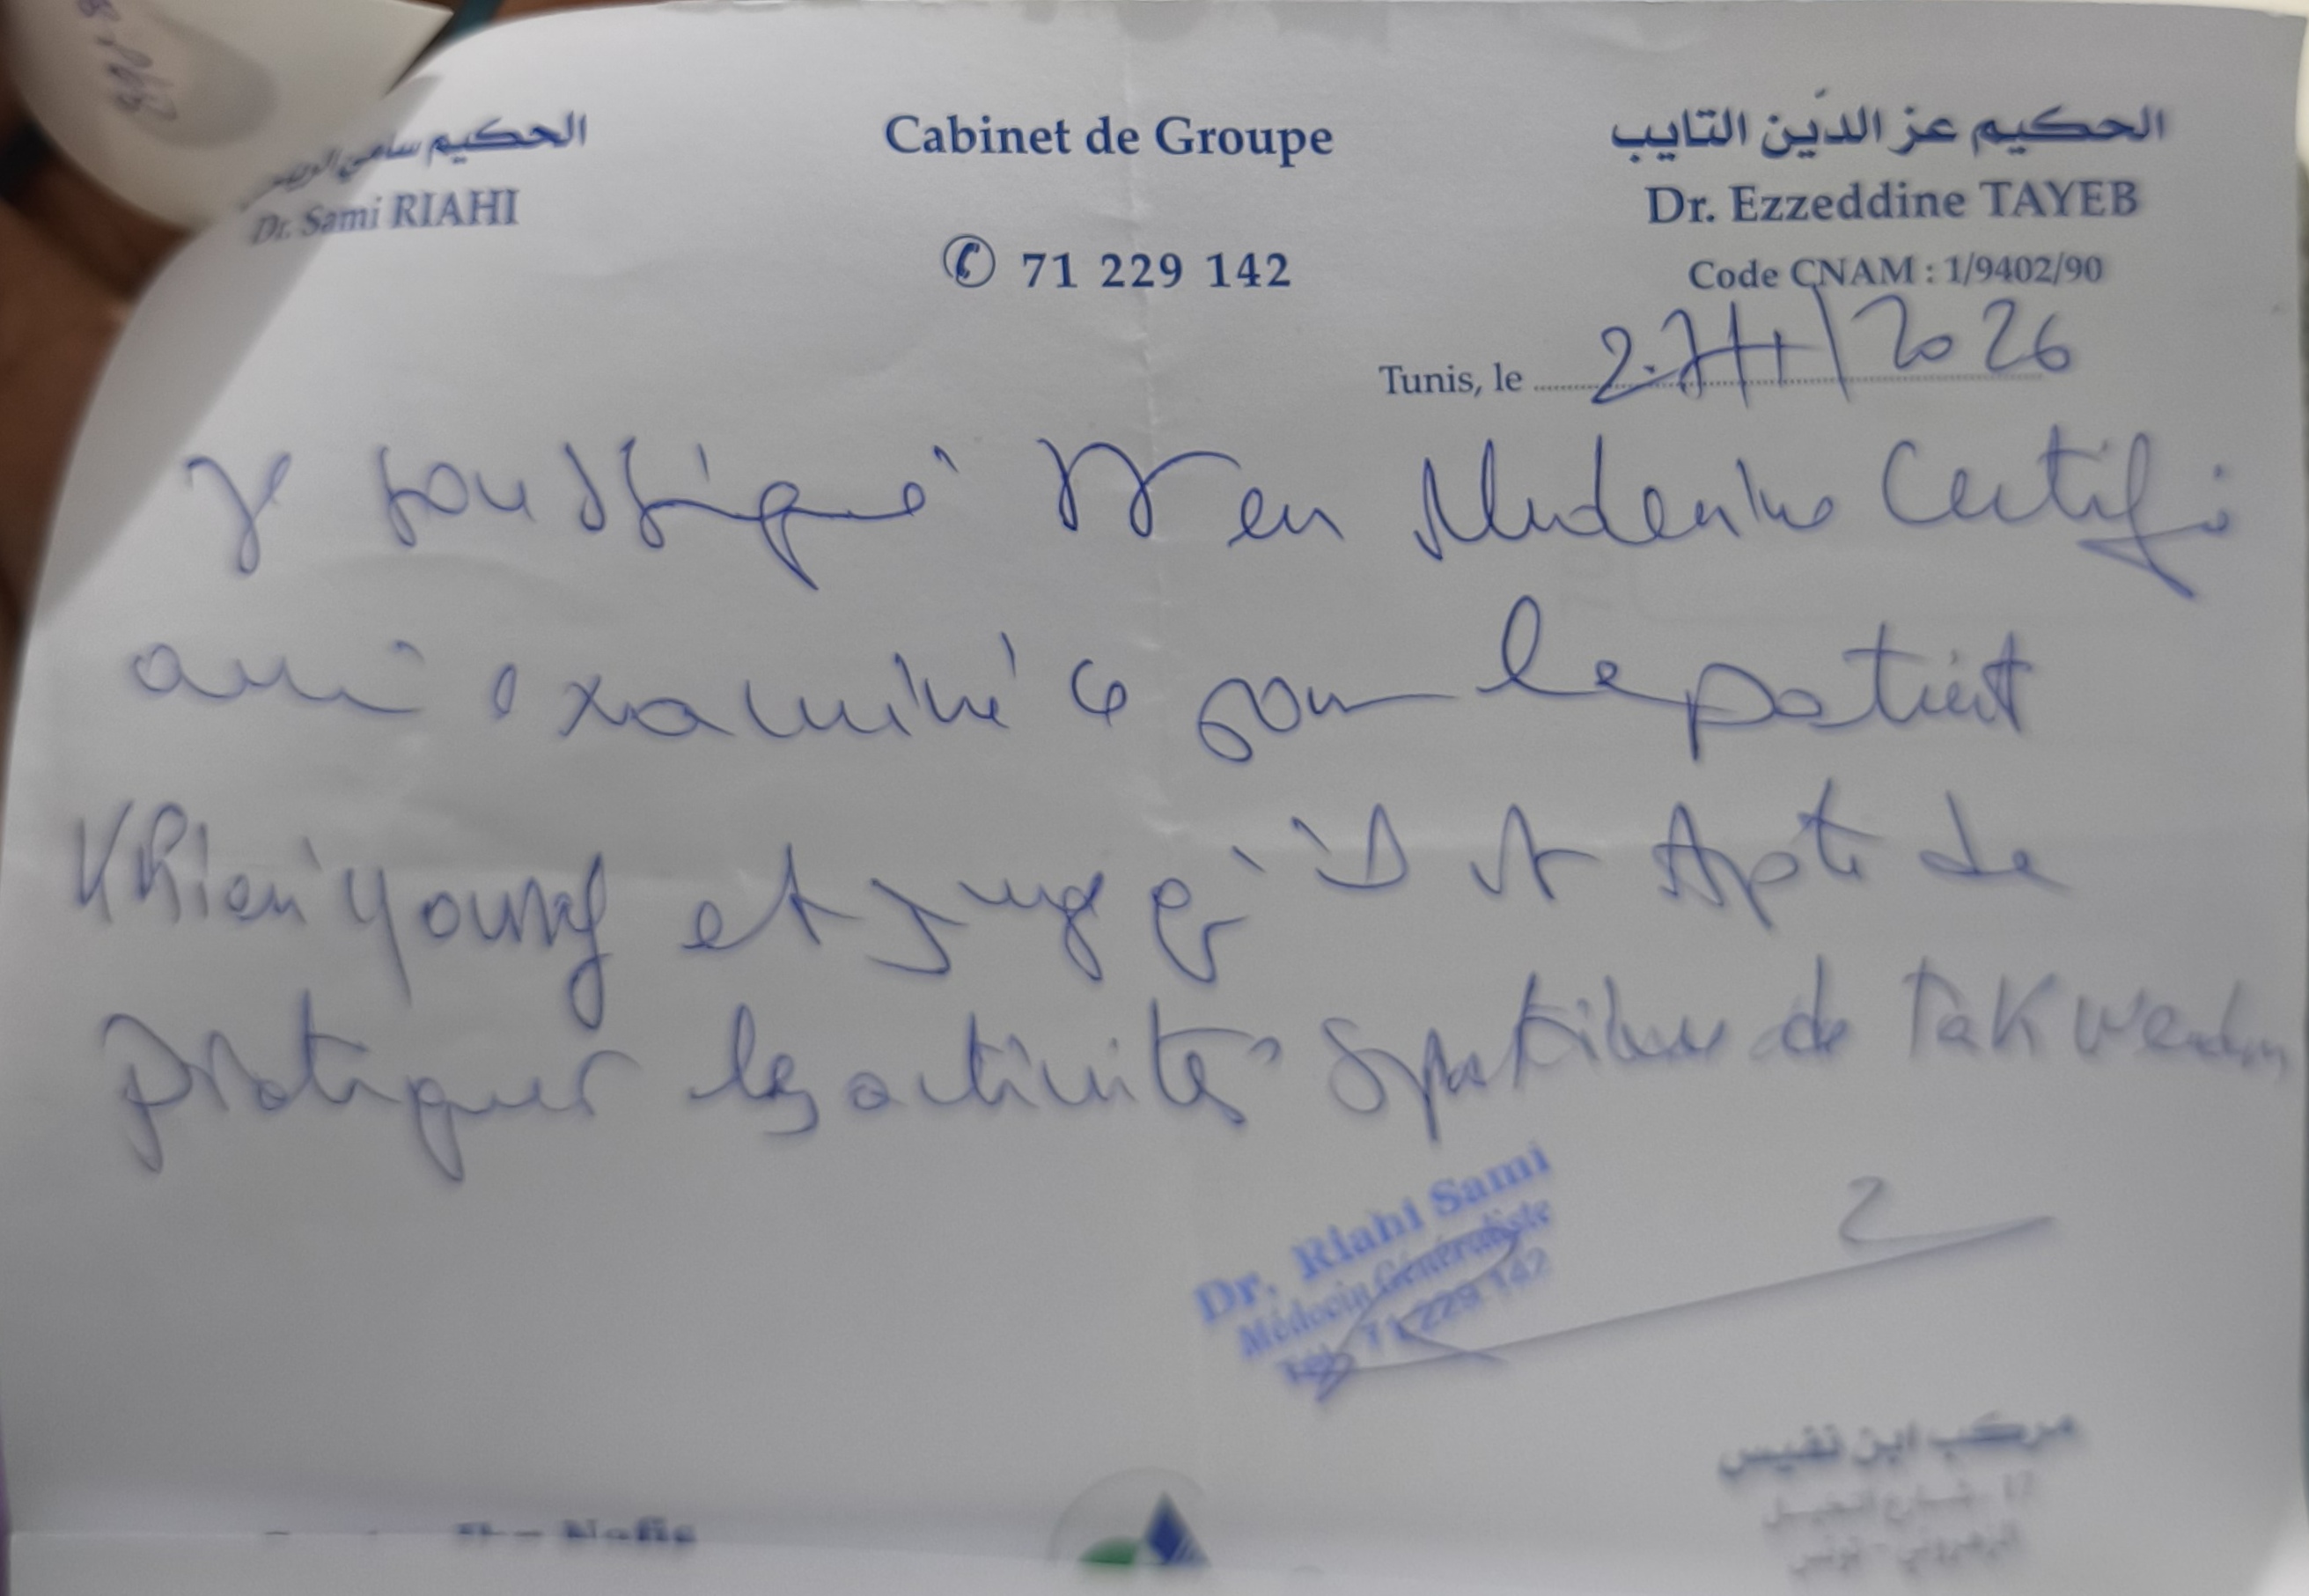 الحكيم سامي
Dr. Sami RIAHI
Cabinet de Groupe
71 229 142
الحكيم عز الدّين التايب
Dr. Ezzeddine TAYEB
Code CNAM : 1/9402/90
Tunis, le 2026
Je soussigné Dr en Médecine Certifi
avoir examiné ce jour le patient
Khiari Youssef et juge qu'il est Apte de
pratiquer les activités sportives de Takwendo
Dr. Riahi Sami
Médecin Généraliste
Tél: 71 229 142
مركب ابن نفيس
Nafis